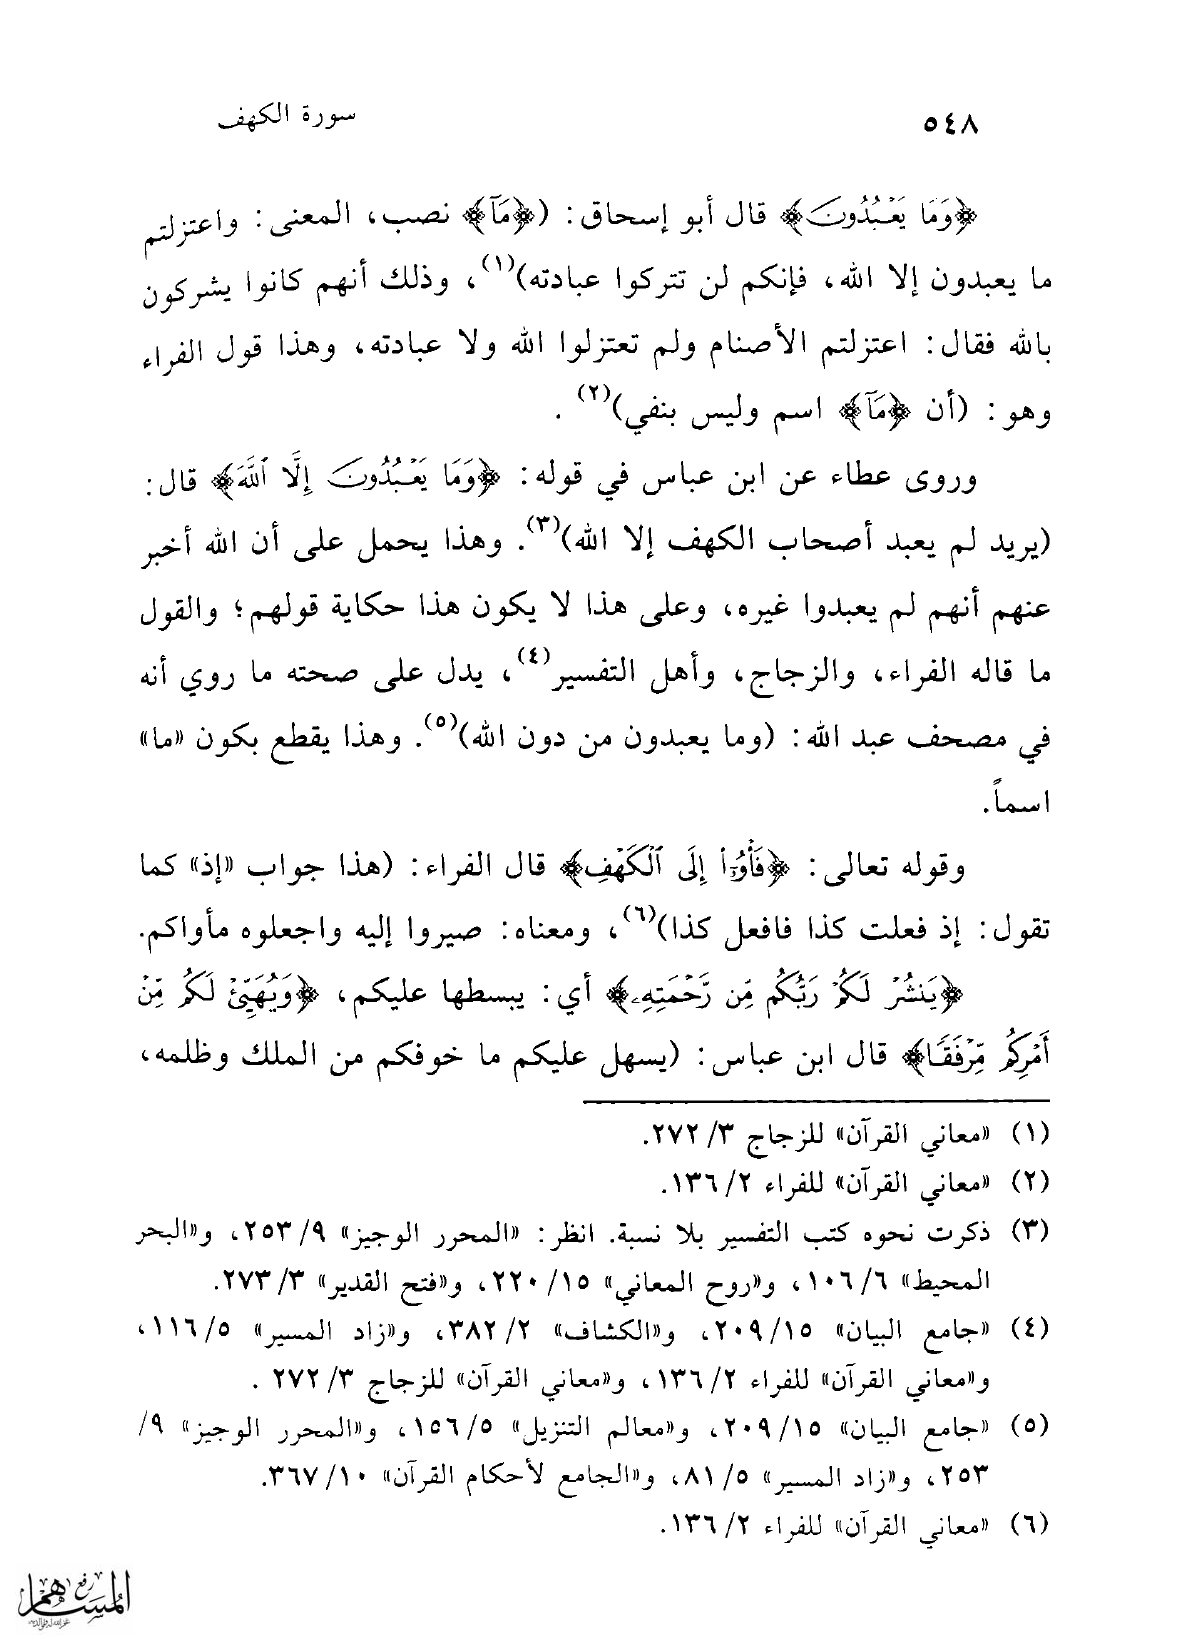 ٥٤٨ سورة الكهف
﴿وَمَا يَعْبُدُونَ﴾ قال أبو إسحاق: (﴿مَآ﴾ نصب، المعنى: واعتزلتم
ما يعبدون إلا الله، فإنكم لن تتركوا عبادته)(١)، وذلك أنهم كانوا يشركون
بالله فقال: اعتزلتم الأصنام ولم تعتزلوا الله ولا عبادته، وهذا قول الفراء
وهو: (أن ﴿مَآ﴾ اسم وليس بنفي)(٢) .
وروى عطاء عن ابن عباس في قوله: ﴿وَمَا يَعْبُدُونَ إِلَّا ٱللَّهَ﴾ قال:
(يريد لم يعبد أصحاب الكهف إلا الله)(٣). وهذا يحمل على أن الله أخبر
عنهم أنهم لم يعبدوا غيره، وعلى هذا لا يكون هذا حكاية قولهم؛ والقول
ما قاله الفراء، والزجاج، وأهل التفسير(٤)، يدل على صحته ما روي أنه
في مصحف عبد الله: (وما يعبدون من دون الله)(٥). وهذا يقطع بكون «ما»
اسماً.
وقوله تعالى: ﴿فَأْوُۥٓا۟ إِلَى ٱلْكَهْفِ﴾ قال الفراء: (هذا جواب «إذ» كما
تقول: إذ فعلت كذا فافعل كذا)(٦)، ومعناه: صيروا إليه واجعلوه مأواكم.
﴿يَنشُرْ لَكُمْ رَبُّكُم مِّن رَّحْمَتِهِۦ﴾ أي: يبسطها عليكم، ﴿وَيُهَيِّئْ لَكُم مِّنْ
أَمْرِكُم مِّرْفَقًا﴾ قال ابن عباس: (يسهل عليكم ما خوفكم من الملك وظلمه،
(١) «معاني القرآن» للزجاج ٣/ ٢٧٢.
(٢) «معاني القرآن» للفراء ٢/ ١٣٦.
(٣) ذكرت نحوه كتب التفسير بلا نسبة. انظر: «المحرر الوجيز» ٩/ ٢٥٣، و«البحر
المحيط» ٦/ ١٠٦، و«روح المعاني» ١٥/ ٢٢٠، و«فتح القدير» ٣/ ٢٧٣.
(٤) «جامع البيان» ١٥/ ٢٠٩، و«الكشاف» ٢/ ٣٨٢، و«زاد المسير» ٥/ ١١٦،
و«معاني القرآن» للفراء ٢/ ١٣٦، و«معاني القرآن» للزجاج ٣/ ٢٧٢ .
(٥) «جامع البيان» ١٥/ ٢٠٩، و«معالم التنزيل» ٥/ ١٥٦، و«المحرر الوجيز» ٩/
٢٥٣، و«زاد المسير» ٥/ ٨١، و«الجامع لأحكام القرآن» ١٠/ ٣٦٧.
(٦) «معاني القرآن» للفراء ٢/ ١٣٦.